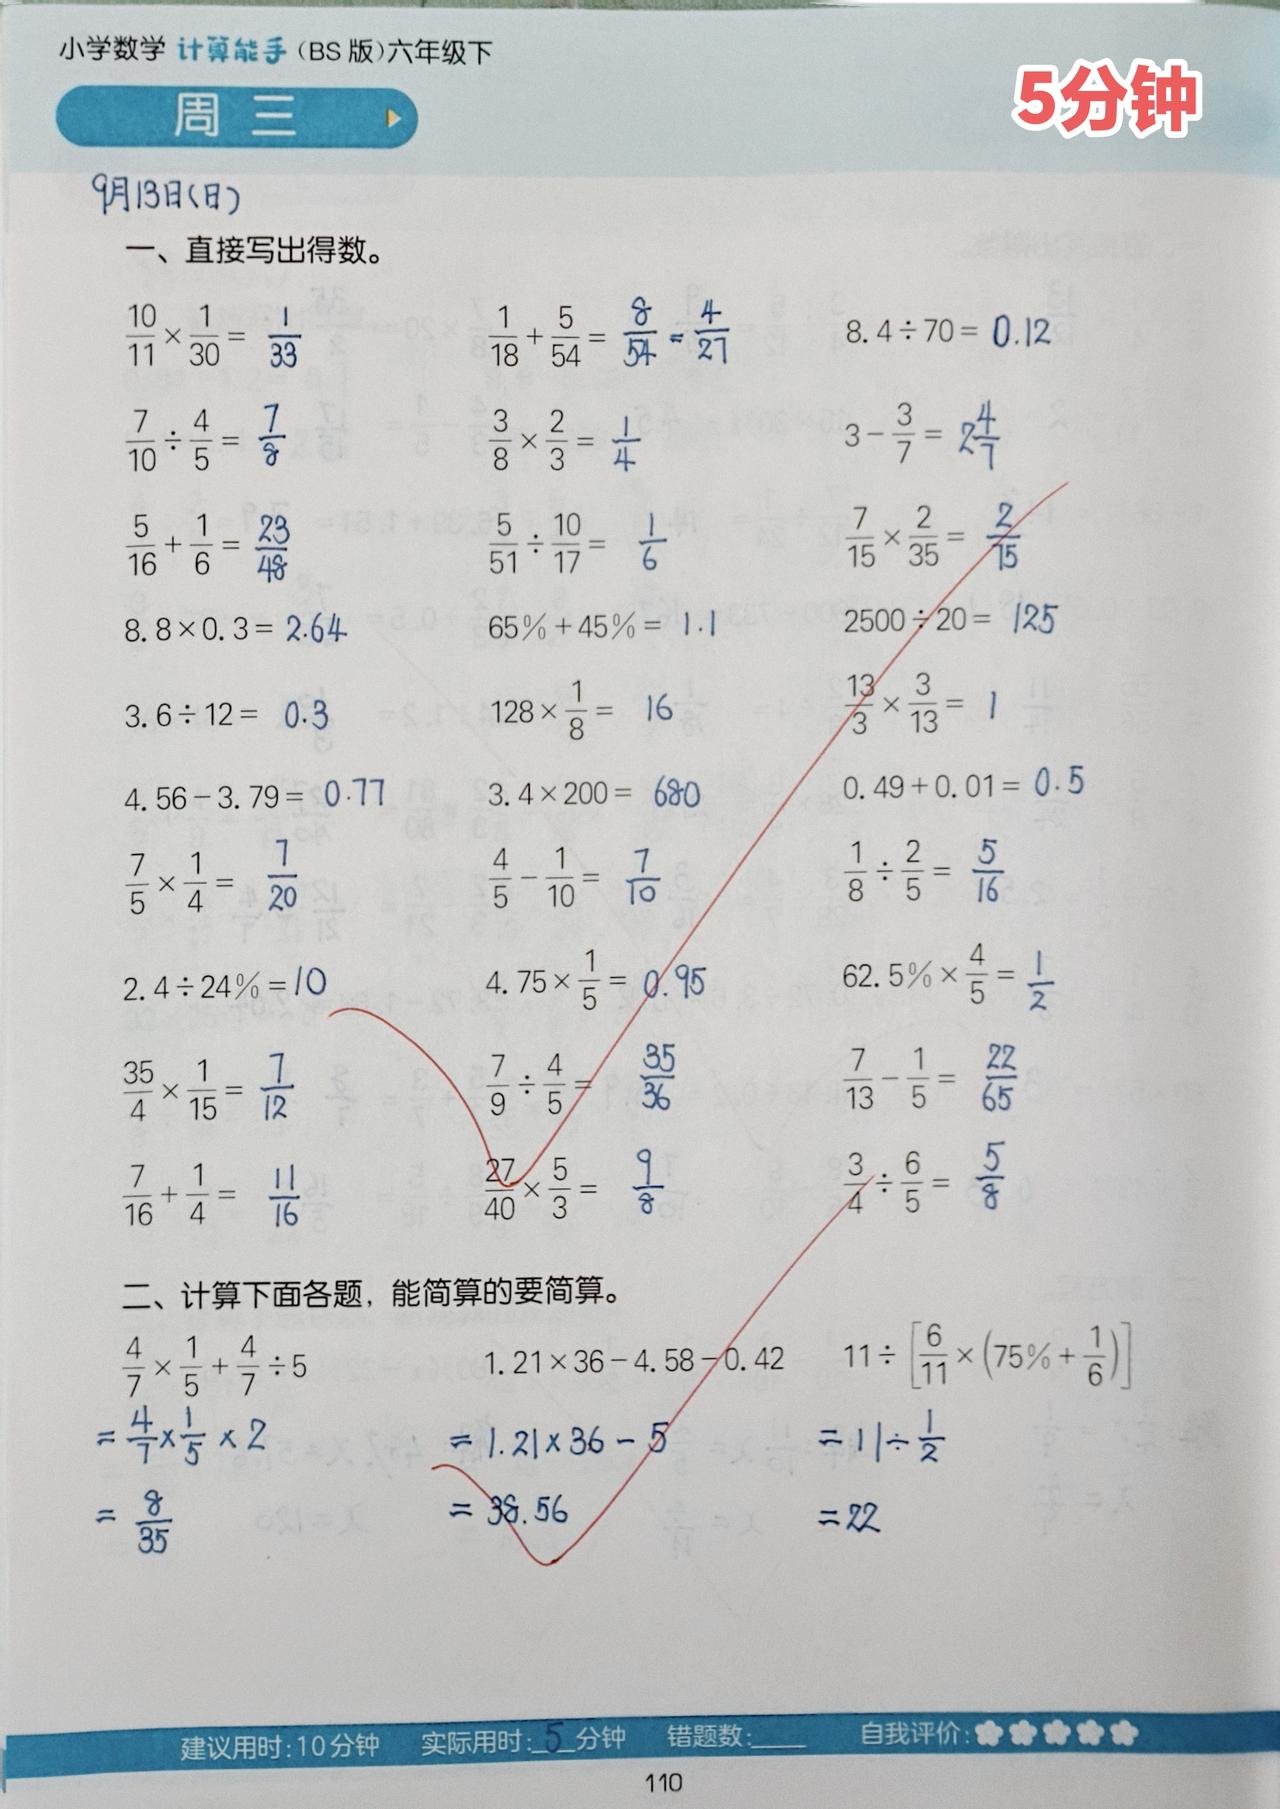 小学数学 计算能手（BS版）六年级下
5分钟
周三
9月13日(日)
一、直接写出得数。
10/11 × 1/30 = 1/33  1/18 + 5/54 = 8/54 = 4/27  8.4÷70= 0.12
7/10 ÷ 4/5 = 7/8  3/8 × 2/3 = 1/4  3 − 3/7 = 2 4/7
5/16 + 1/6 = 23/48  5/51 ÷ 10/17 = 1/6  7/15 × 2/35 = 2/75
8.8×0.3= 2.64  65%+45%= 1.1  2500÷20= 125
3.6÷12= 0.3  128× 1/8 = 16  13/3 × 3/13 = 1
4.56−3.79= 0.77  3.4×200= 680  0.49+0.01= 0.5
7/5 × 1/4 = 7/20  4/5 − 1/10 = 7/10  1/8 ÷ 2/5 = 5/16
2.4÷24%= 10  4.75× 1/5 = 0.95  62.5%× 4/5 = 1/2
35/4 × 1/15 = 7/12  7/9 ÷ 4/5 = 35/36  7/13 − 1/5 = 22/65
7/16 + 1/4 = 11/16  27/40 × 5/3 = 9/8  3/4 ÷ 6/5 = 5/8
二、计算下面各题，能简算的要简算。
4/7 × 1/5 + 4/7 ÷5  1.21×36−4.58−0.42  11÷[6/11 ×(75%+ 1/6)]
= 4/7 × 1/5 × 2  = 1.21×36−5  = 11÷ 1/2
= 8/35  = 38.56  = 22
建议用时:10分钟 实际用时:5分钟 错题数:____ 自我评价:
110